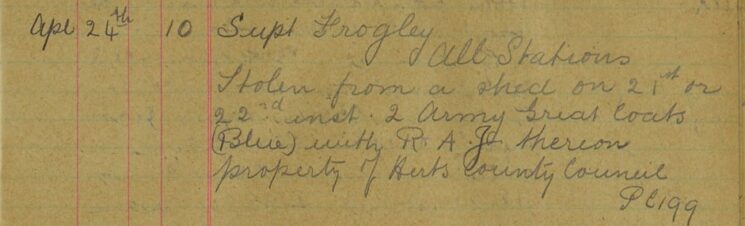 Apl 24th 10 Supt Frogley
All Stations
Stolen from a shed on 21st or
22nd inst. 2 Army Great Coats
(Blue) with R. A. F. thereon
property of Herts County Council
PC 199